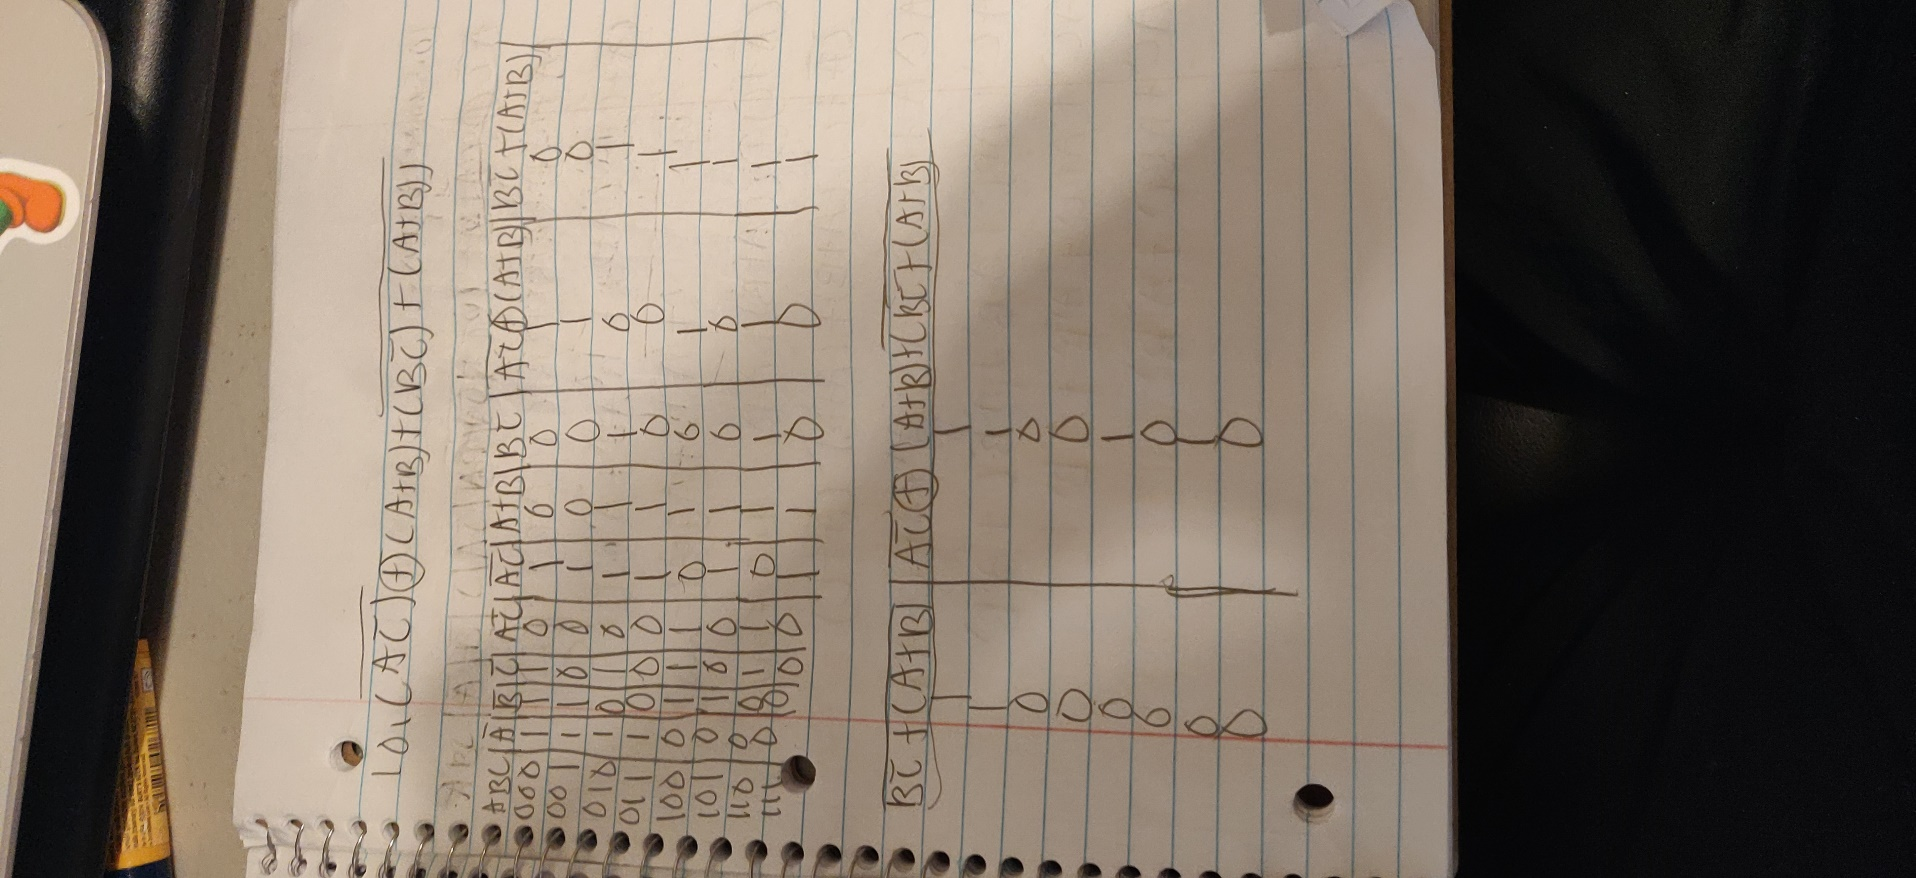 10. (AC̅)̅ ⊕ (A+B)+(BC̅)+(A+B))̅
ABC | A̅ | B̅ | C̅ | AC̅ | A̅C̅̅ | A+B | BC̅ | A̅C̅̅ ⊕ (A+B) | BC̅ + (A+B)
000 | 1 | 1 | 1 | 0 | 1 | 0 | 0 | 1 | 0
001 | 1 | 1 | 0 | 0 | 1 | 0 | 0 | 1 | 0
010 | 1 | 0 | 1 | 0 | 1 | 1 | 1 | 0 | 1
011 | 1 | 0 | 0 | 0 | 1 | 1 | 0 | 0 | 1
100 | 0 | 1 | 1 | 1 | 0 | 1 | 0 | 1 | 1
101 | 0 | 1 | 0 | 0 | 1 | 1 | 0 | 0 | 1
110 | 0 | 0 | 1 | 1 | 0 | 1 | 1 | 1 | 1
111 | 0 | 0 | 0 | 0 | 1 | 1 | 0 | 0 | 1
B̅C̅̅+̅(̅A̅+̅B̅)̅ | A̅C̅̅ ⊕ (A+B)+(B̅C̅̅+̅(̅A̅+̅B̅)̅
1 | 1
1 | 1
0 | 0
0 | 0
0 | 1
0 | 0
0 | 1
0 | 0